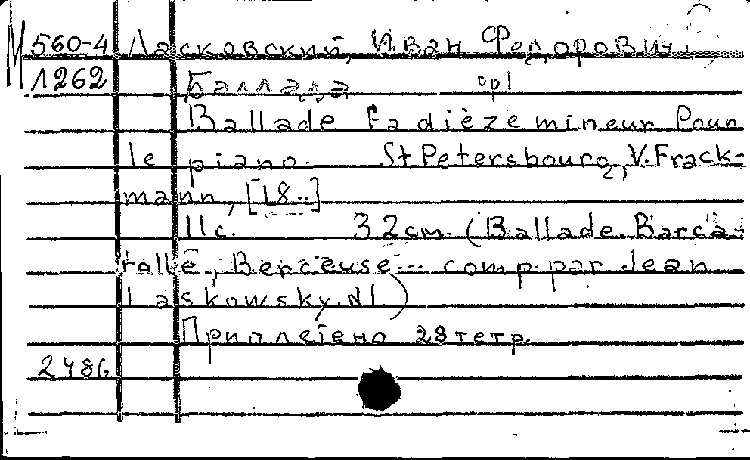 М 560-4 Ласковский, Иван Федорович.
1262 Баллада ор1
Ballade fa dièze mineur Pour
le piano. St Petersbourg, V. Frack-
mann, [18..]
11 с. 32 см. (Ballade. Barca-
rolle, Berceuse... comp. par Jean
Laskowsky. N1)
Приплетено 28 тетр.